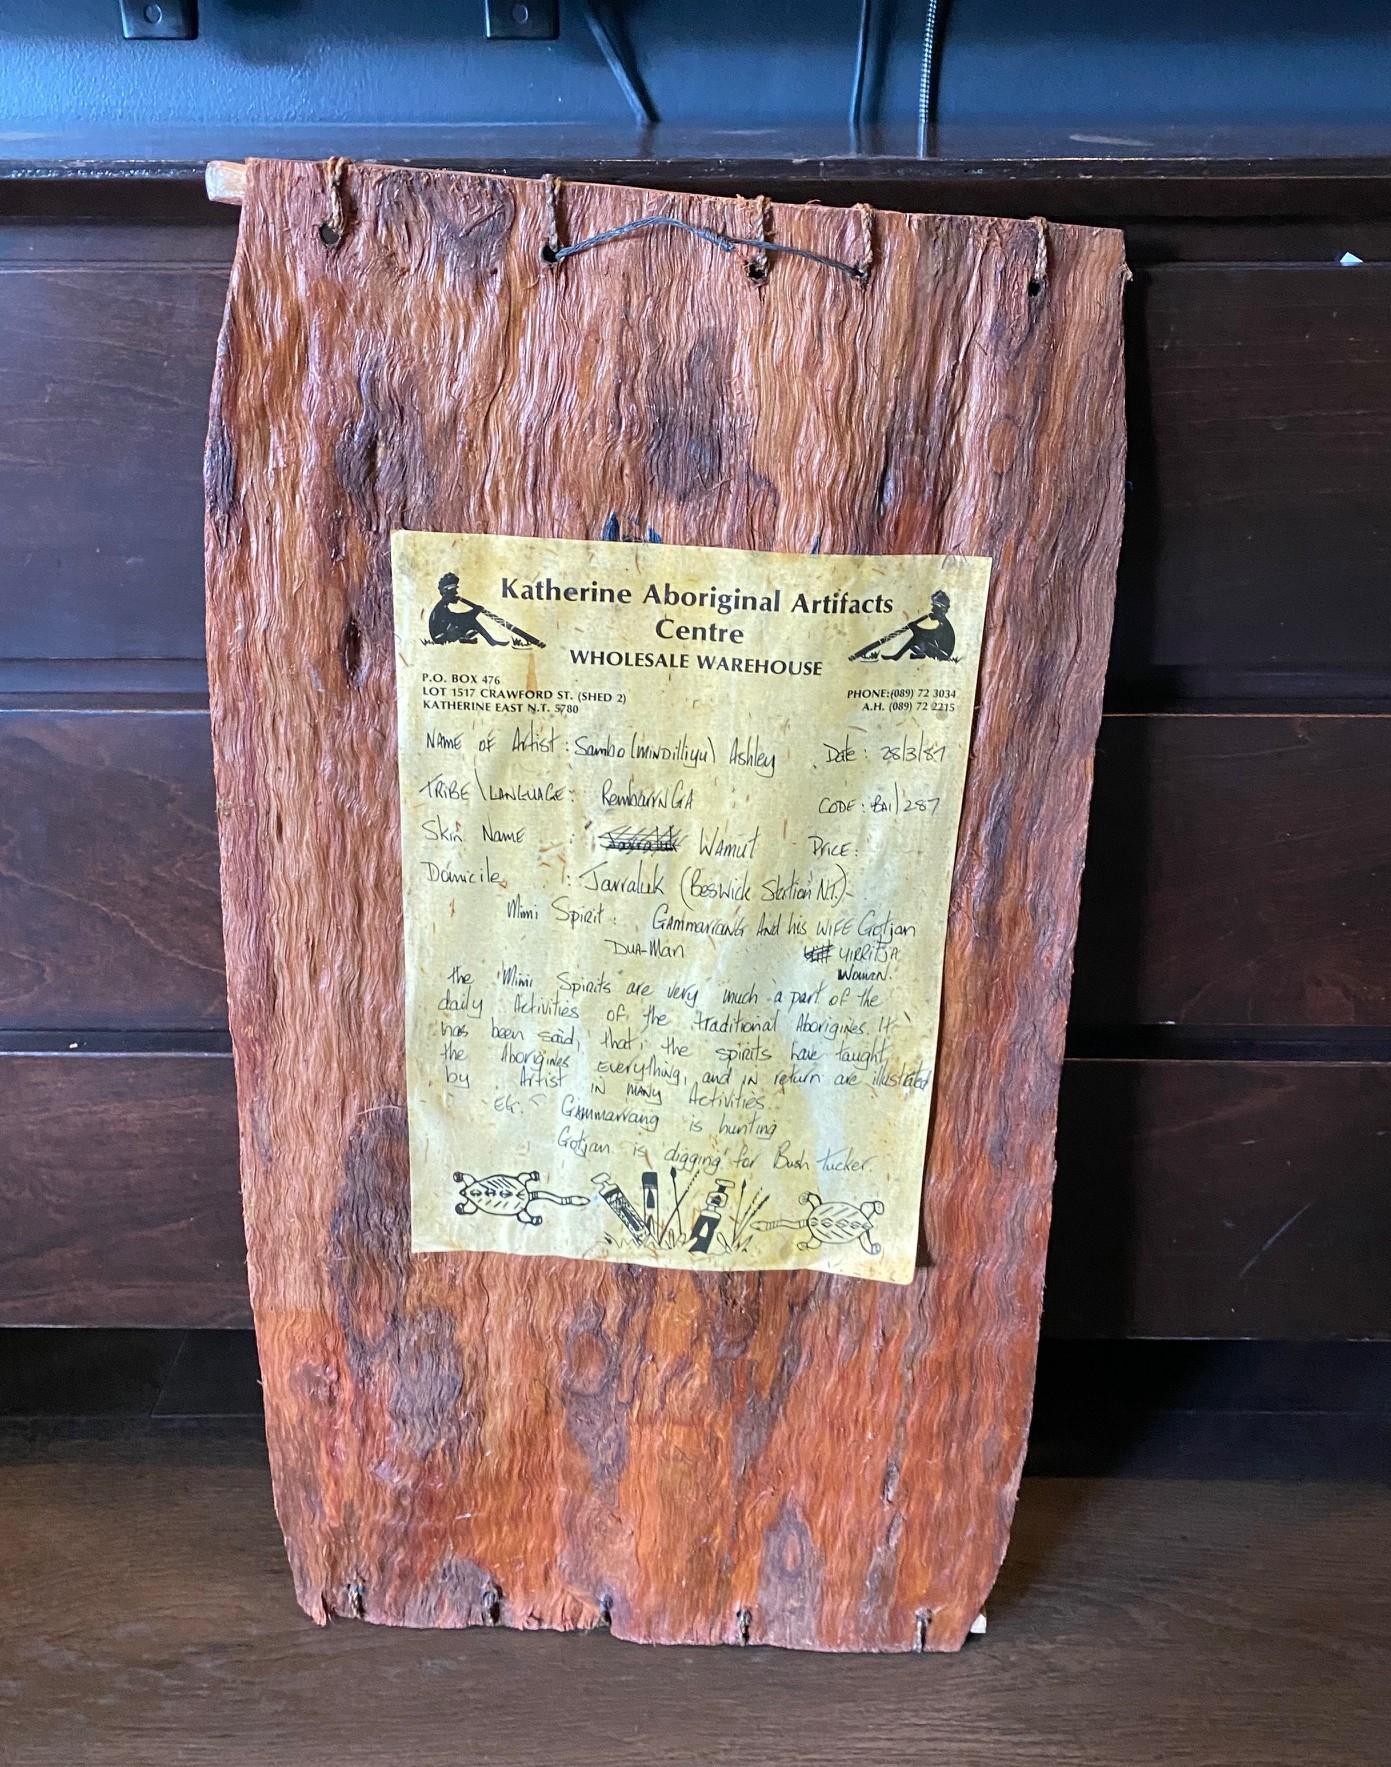 Katherine Aboriginal Artifacts
Centre
WHOLESALE WAREHOUSE
P.O. BOX 476
LOT 1517 CRAWFORD ST. (SHED 2)
KATHERINE EAST N.T. 5780
PHONE:(089) 72 3034
A.H. (089) 72 2215
NAME OF Artist : Sambo (MINDilliyu) Ashley Date : 28/3/87
TRIBE \ LANGUAGE : RembarrNGA CODE : BAI/287
Skin NAME : WAMUT PRICE :
Domicile : Jarraluk (Beswick Station N.T.)
Mimi Spirit : GAMMARRANG And his WIFE Gotjan
DUA-Man YIRRITJA
WOMAN.
the Mimi Spirits are very much a part of the
daily Activities of the traditional Aborigines. It
has been said, that, the spirits have taught
the Aborigines everything, and in return are illustrated
by Artist in many Activities.
EG. Gammarrang is hunting
Gotjan is digging for Bush tucker.